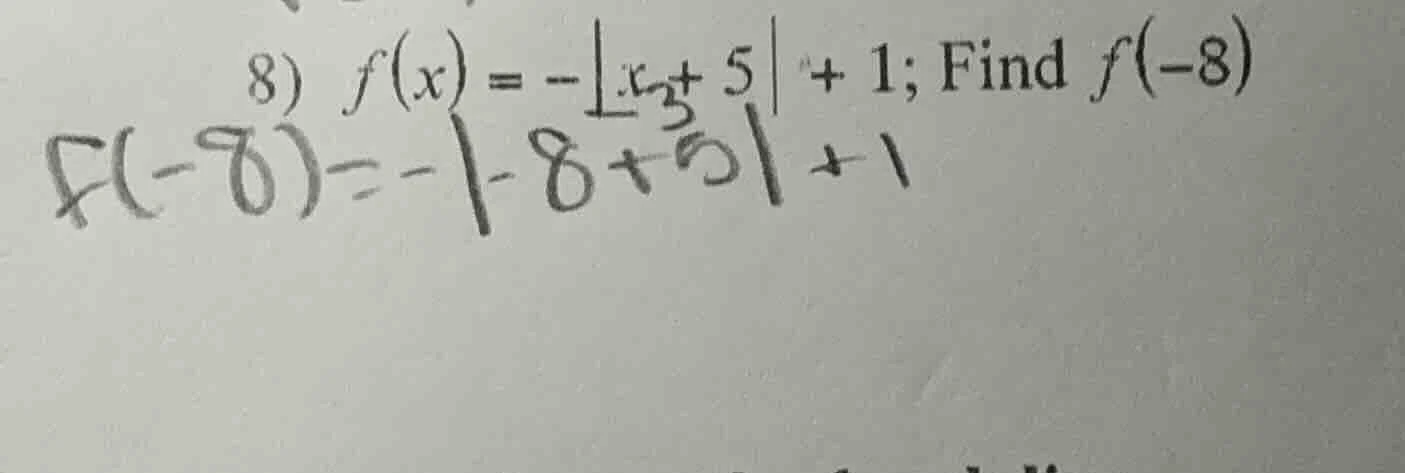 8) f(x) = -|x + 5| + 1; Find f(-8)
-3
F(-8) = -|-8+5|+1